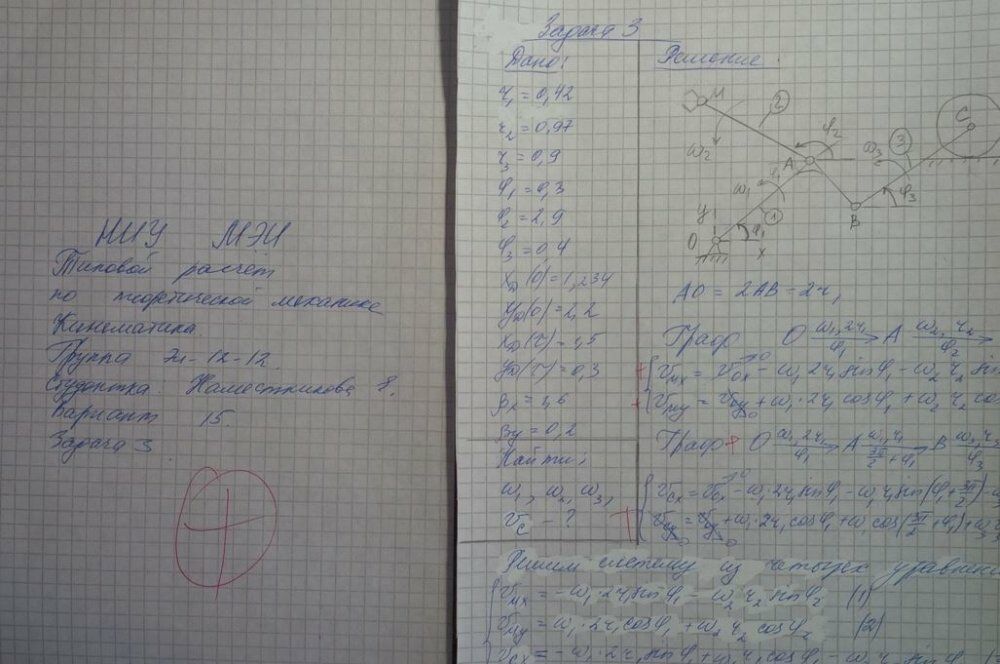 НИУ МЭИ
Типовой расчёт
по теоретической механике
Кинематика
Группа Эл-12-12
Студентка: Наместникова
Вариант 15.
Задача 3
Задача 3
Дано:
r₁ = 0,42
r₂ = 0,97
r₃ = 0,9
φ₁ = 0,3
φ₂ = 2,9
φ₃ = 0,4
(0) = 1,234
(0) = 2,2
(τ) = 1,5
(τ) = 0,3
= 1,6
= 0,2
Найти:
ω₁, ω₂, ω₃,
v_C - ?
Решение:
M
2
φ₂
C
ω₂
A
ω₃
3
ω₁
φ₃
B
y
1
O
φ₁
x
AO = 2AB = 2r₁
Граф O ω₁, 2r₁ → φ₁ A ω₂, r₂ → φ₂
v_Mx = v_Ox⁰ - ω₁ 2r₁ sinφ₁ - ω₂ r₂ sin
v_My = v_Oy⁰ + ω₁·2r₁ cosφ₁ + ω₂ r₂ co
Граф O ω₁, 2r₁ → φ₁ A ω₁, r₁ → 3π/2 + φ₁ B ω₃, r₃ φ₃
v_Cx = v_Ox⁰ - ω₁·2r₁ sinφ₁ - ω₁ r₁ sin(φ₁ + 3π/2) - ω₃
v_Cy = v_Oy⁰ + ω₁·2r₁ cosφ₁ + ω₁ cos(3π/2 + φ₁) + ω₃
Решим систему из четырех уравнени
v_Mx = -ω₁·2r₁ sinφ₁ - ω₂ r₂ sinφ₂ (1)
v_My = ω₁·2r₁ cosφ₁ + ω₂ r₂ cosφ₂ (2)
v_Cx = -ω₁·2r₁ sinφ₁ + ω₁ r₁ cosφ₁ - ω₃ r₃ sinφ₃